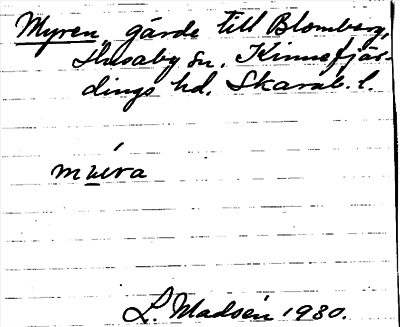 Myren, gärde till Blomberg,
Husaby sn. Kinnefjär-
dings hd. Skarab. l.
L. Madsén 1930.